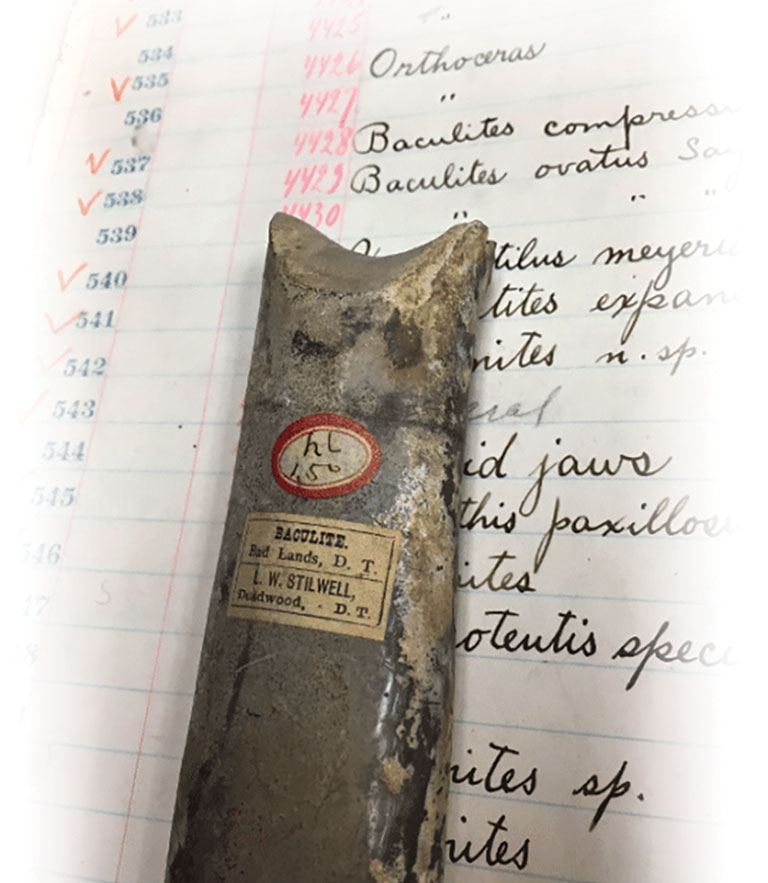 533 4425 "
534 4426 Orthoceras
535 4427 "
536 4428 Baculites compress
537 4429 Baculites ovatus Say
538 4430 " " "
539 tilus meyeri
540 tites expan
541 nites n. sp.
542
543 eral
544 id jaws
545 this paxillos
546 ites
17 oteutis spec
8
nites sp.
nites
hl
1.50
BACULITE.
Bad Lands, D. T.
L. W. STILWELL,
Deadwood, - D. T.